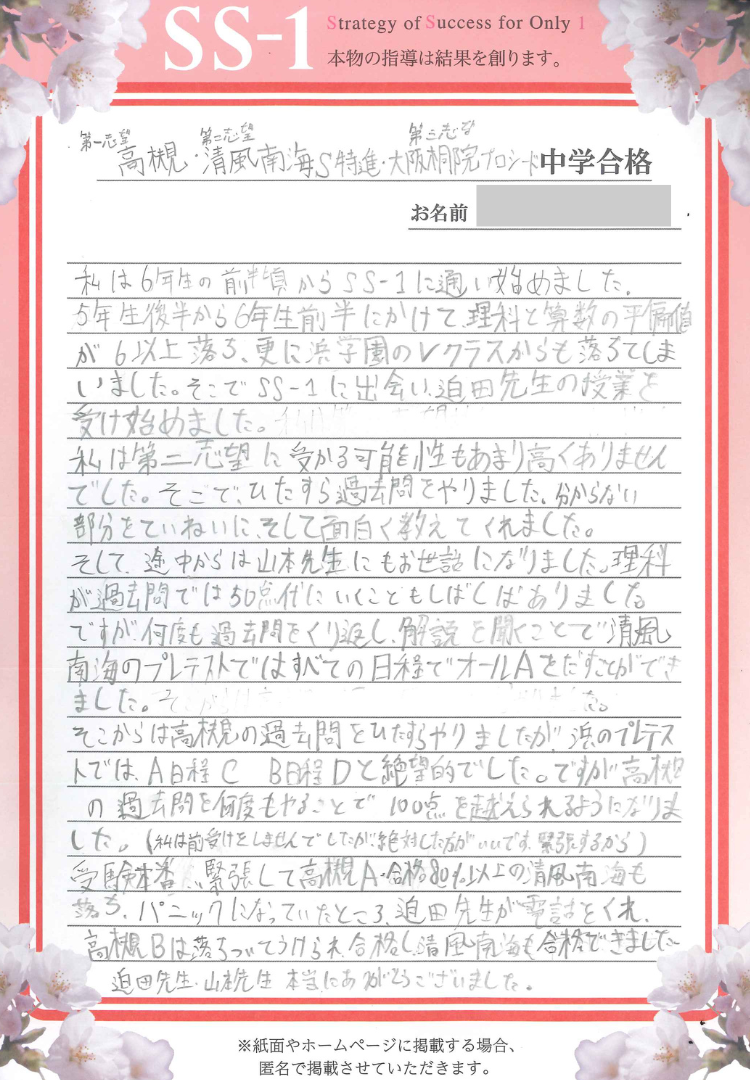 SS-1
Strategy of Success for Only 1
本物の指導は結果を創ります。
第一志望 第二志望 第三志望
高槻・清風南海S特進・大阪桐院プロシード中学合格
お名前
私は6年生の前半頃からSS-1に通い始めました。
5年生後半から6年生前半にかけて、理科と算数の平偏値
が6以上落ち、更に浜学園のVクラスからも落ちてしま
いました。そこでSS-1に出会い、迫田先生の授業を
受け始めました。
私は第二志望に受かる可能性もあまり高くありません
でした。そこで、ひたすら過去問をやりました。分からない
部分をていねいに、そして面白く教えてくれました。
そして、途中からは山本先生にもお世話になりました。理科
が過去問では50点代にいくこともしばしばありました。
ですが、何度も過去問をくり返し、解説を聞くことで清風
南海のプレテストではすべての日程でオールAをだすことができ
ました。
そこからは高槻の過去問をひたすらやりましたが、浜のプレテス
トでは、A日程C B日程Dと絶望的でした。ですが高槻
の過去問を何度もやることで100点を越えられるようになりま
した。(私は前受けをしませんでしたが、絶対した方がいいです。緊張するから)
受験本番、緊張して高槻A・合格80%以上の清風南海も
落ち、パニックになっていたところ、迫田先生が電話をくれ、
高槻Bは落ちついてうけられ、合格し、清風南海も合格できました。
迫田先生、山本先生 本当にありがとうございました。
※紙面やホームページに掲載する場合、
匿名で掲載させていただきます。